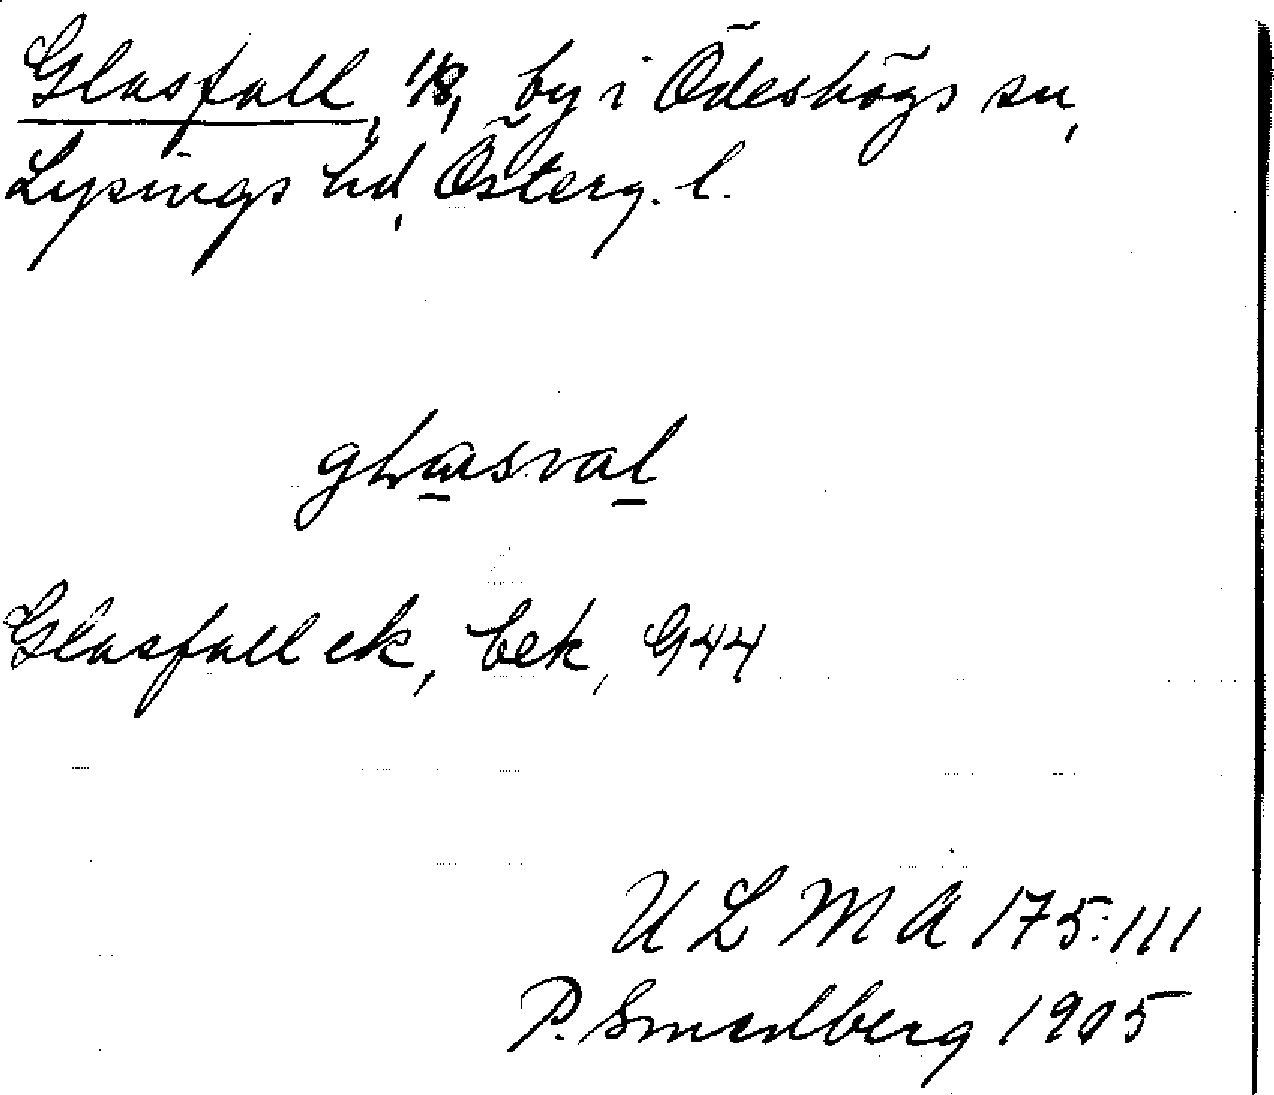 Glasfall, 1/8, by i Ödeshögs sn,
Lysings hd, Österg. l.
ghasval
Glasfall ek, bek, G44
U L M A 175:111
P. Smedberg 1905